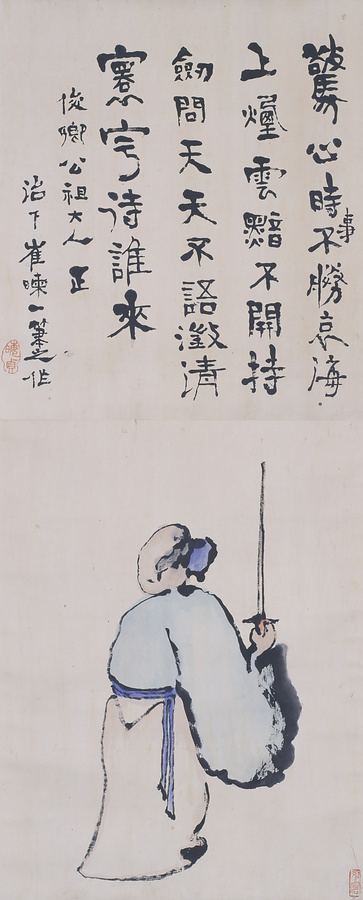 驚心時事不勝哀海
上煙雲黯不開持
劍問天天不語澂清
寰宇待誰來
俊卿公祖大人正
治下崔暕一筆之作